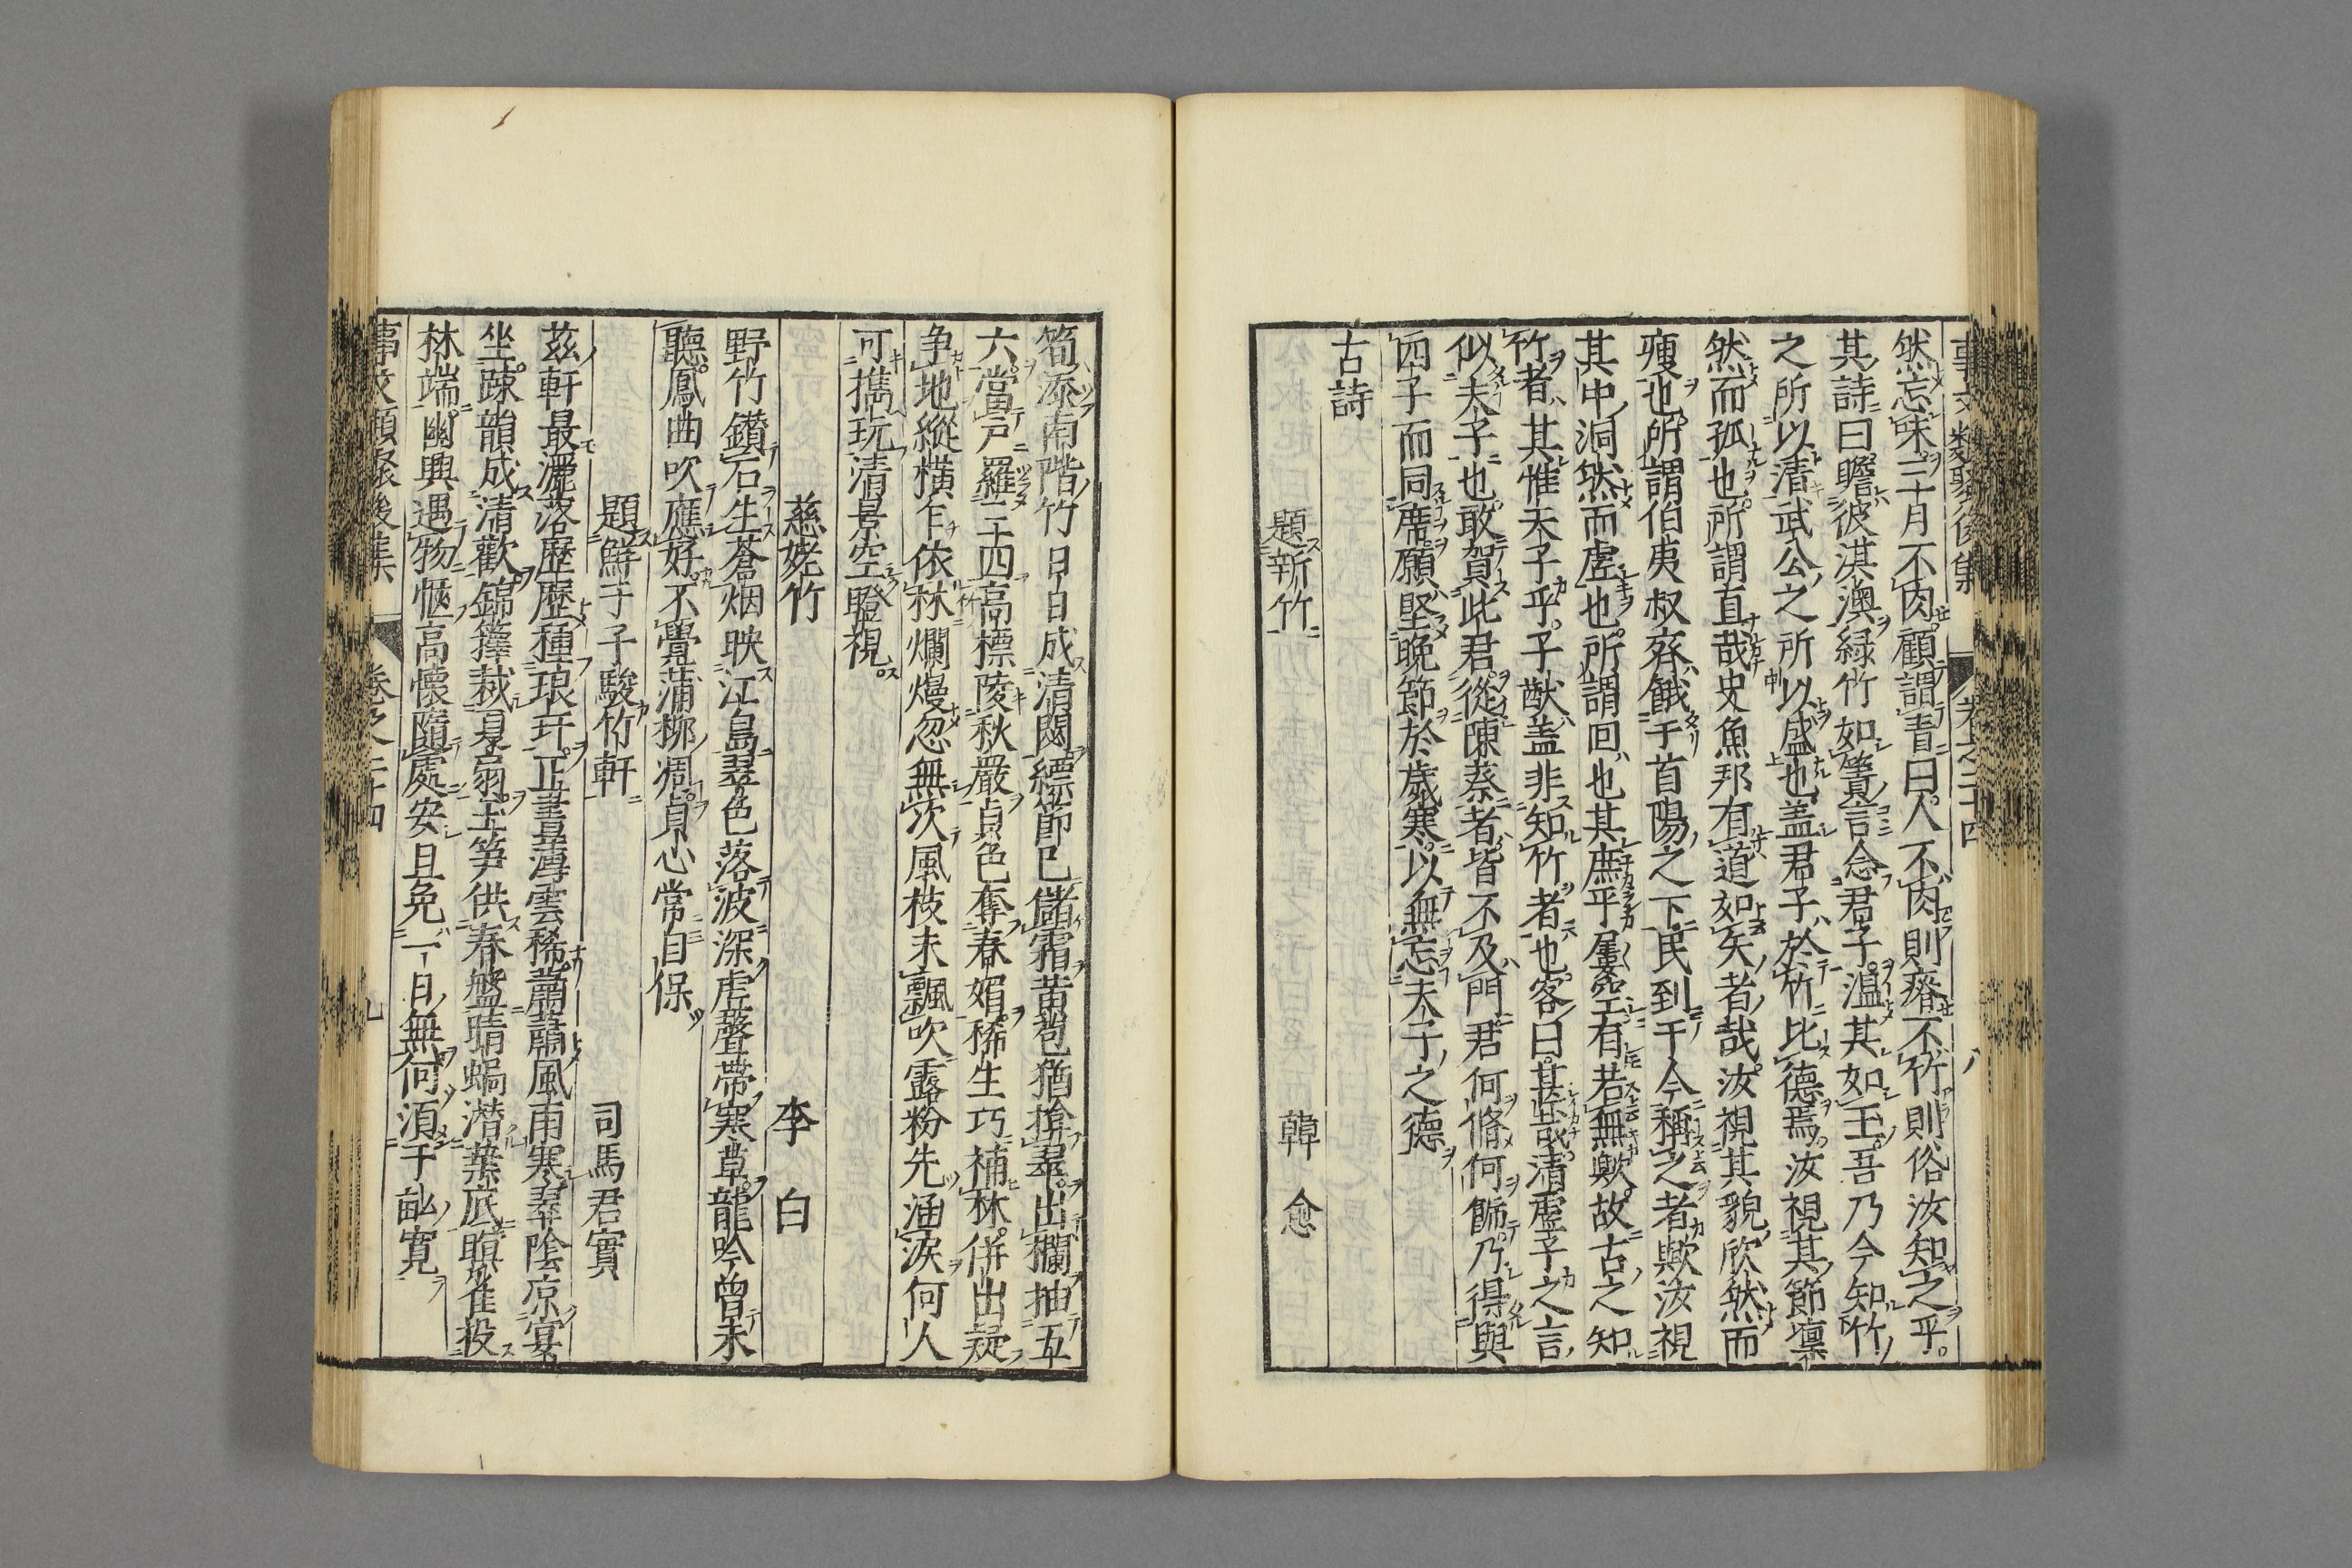 事文類聚後集 卷之二十四 八
然忘味三十月不肉顧謂青曰人不肉則瘠不竹則俗汝知之乎
其詩曰瞻彼淇澳緑竹如簀言念君子溫其如玉吾乃今知竹
之所以清武公之所以盛也盖君子於竹比德焉汝視其節凜
然而孤也所謂直哉史魚邦有道如矢者哉汝視其貌欣然而
瘦也所謂伯夷叔齊餓于首陽之下民到于今稱之者歟汝視
其中洞然而虛也所謂回也其庶乎屢空有若無歟故古之知
竹者其惟夫子乎子猷盖非知竹者也客曰甚哉清虛子之言
似夫子也敢賀此君從陳蔡者皆不及門君何脩何飾乃得與
四子而同席願堅晚節於歲寒以無忘夫子之德
古詩
題新竹 韓 愈
筍添南階竹日日成清閟縹節已儲霜黃苞猶揜翠出欄抽五
六當戶羅三四高標陵秋嚴貞色奪春媚稀生巧補林併出疑
争地縱橫乍依林爛熳忽無次風枝未飄吹露粉先涵涙何人
可擕玩清景空瞪視
慈姥竹 李 白
野竹鑽石生蒼烟映江島翠色落波深虛聲帶寒草龍吟曾未
聽鳳曲吹應好不覺蒲柳凋貞心常自保
題鮮于子駿竹軒 司馬君實
茲軒最灑落歷歷種琅玕正晝薄雲稀蕭蕭風雨寒翠陰凉宴
坐踈韻成清歡錦籜裁夏扇玉笋供春盤晴蝸潜葉底暝雀投
林端幽興遇物愜高懷隨處安且免一日無何須千畝寬
事文類聚後集 卷之二十四 九